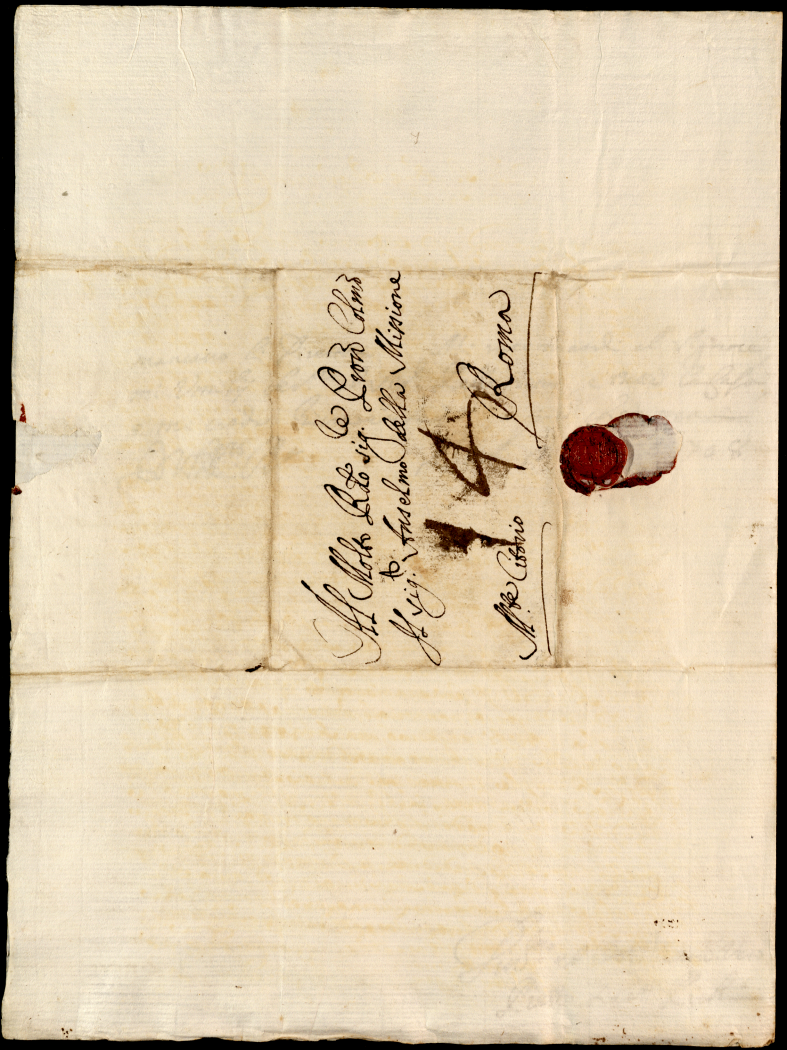 Al Molto Rdo sig. le Pron Colmo
Il sig. Anselmo della Missione
4
Roma
M.te Citorio